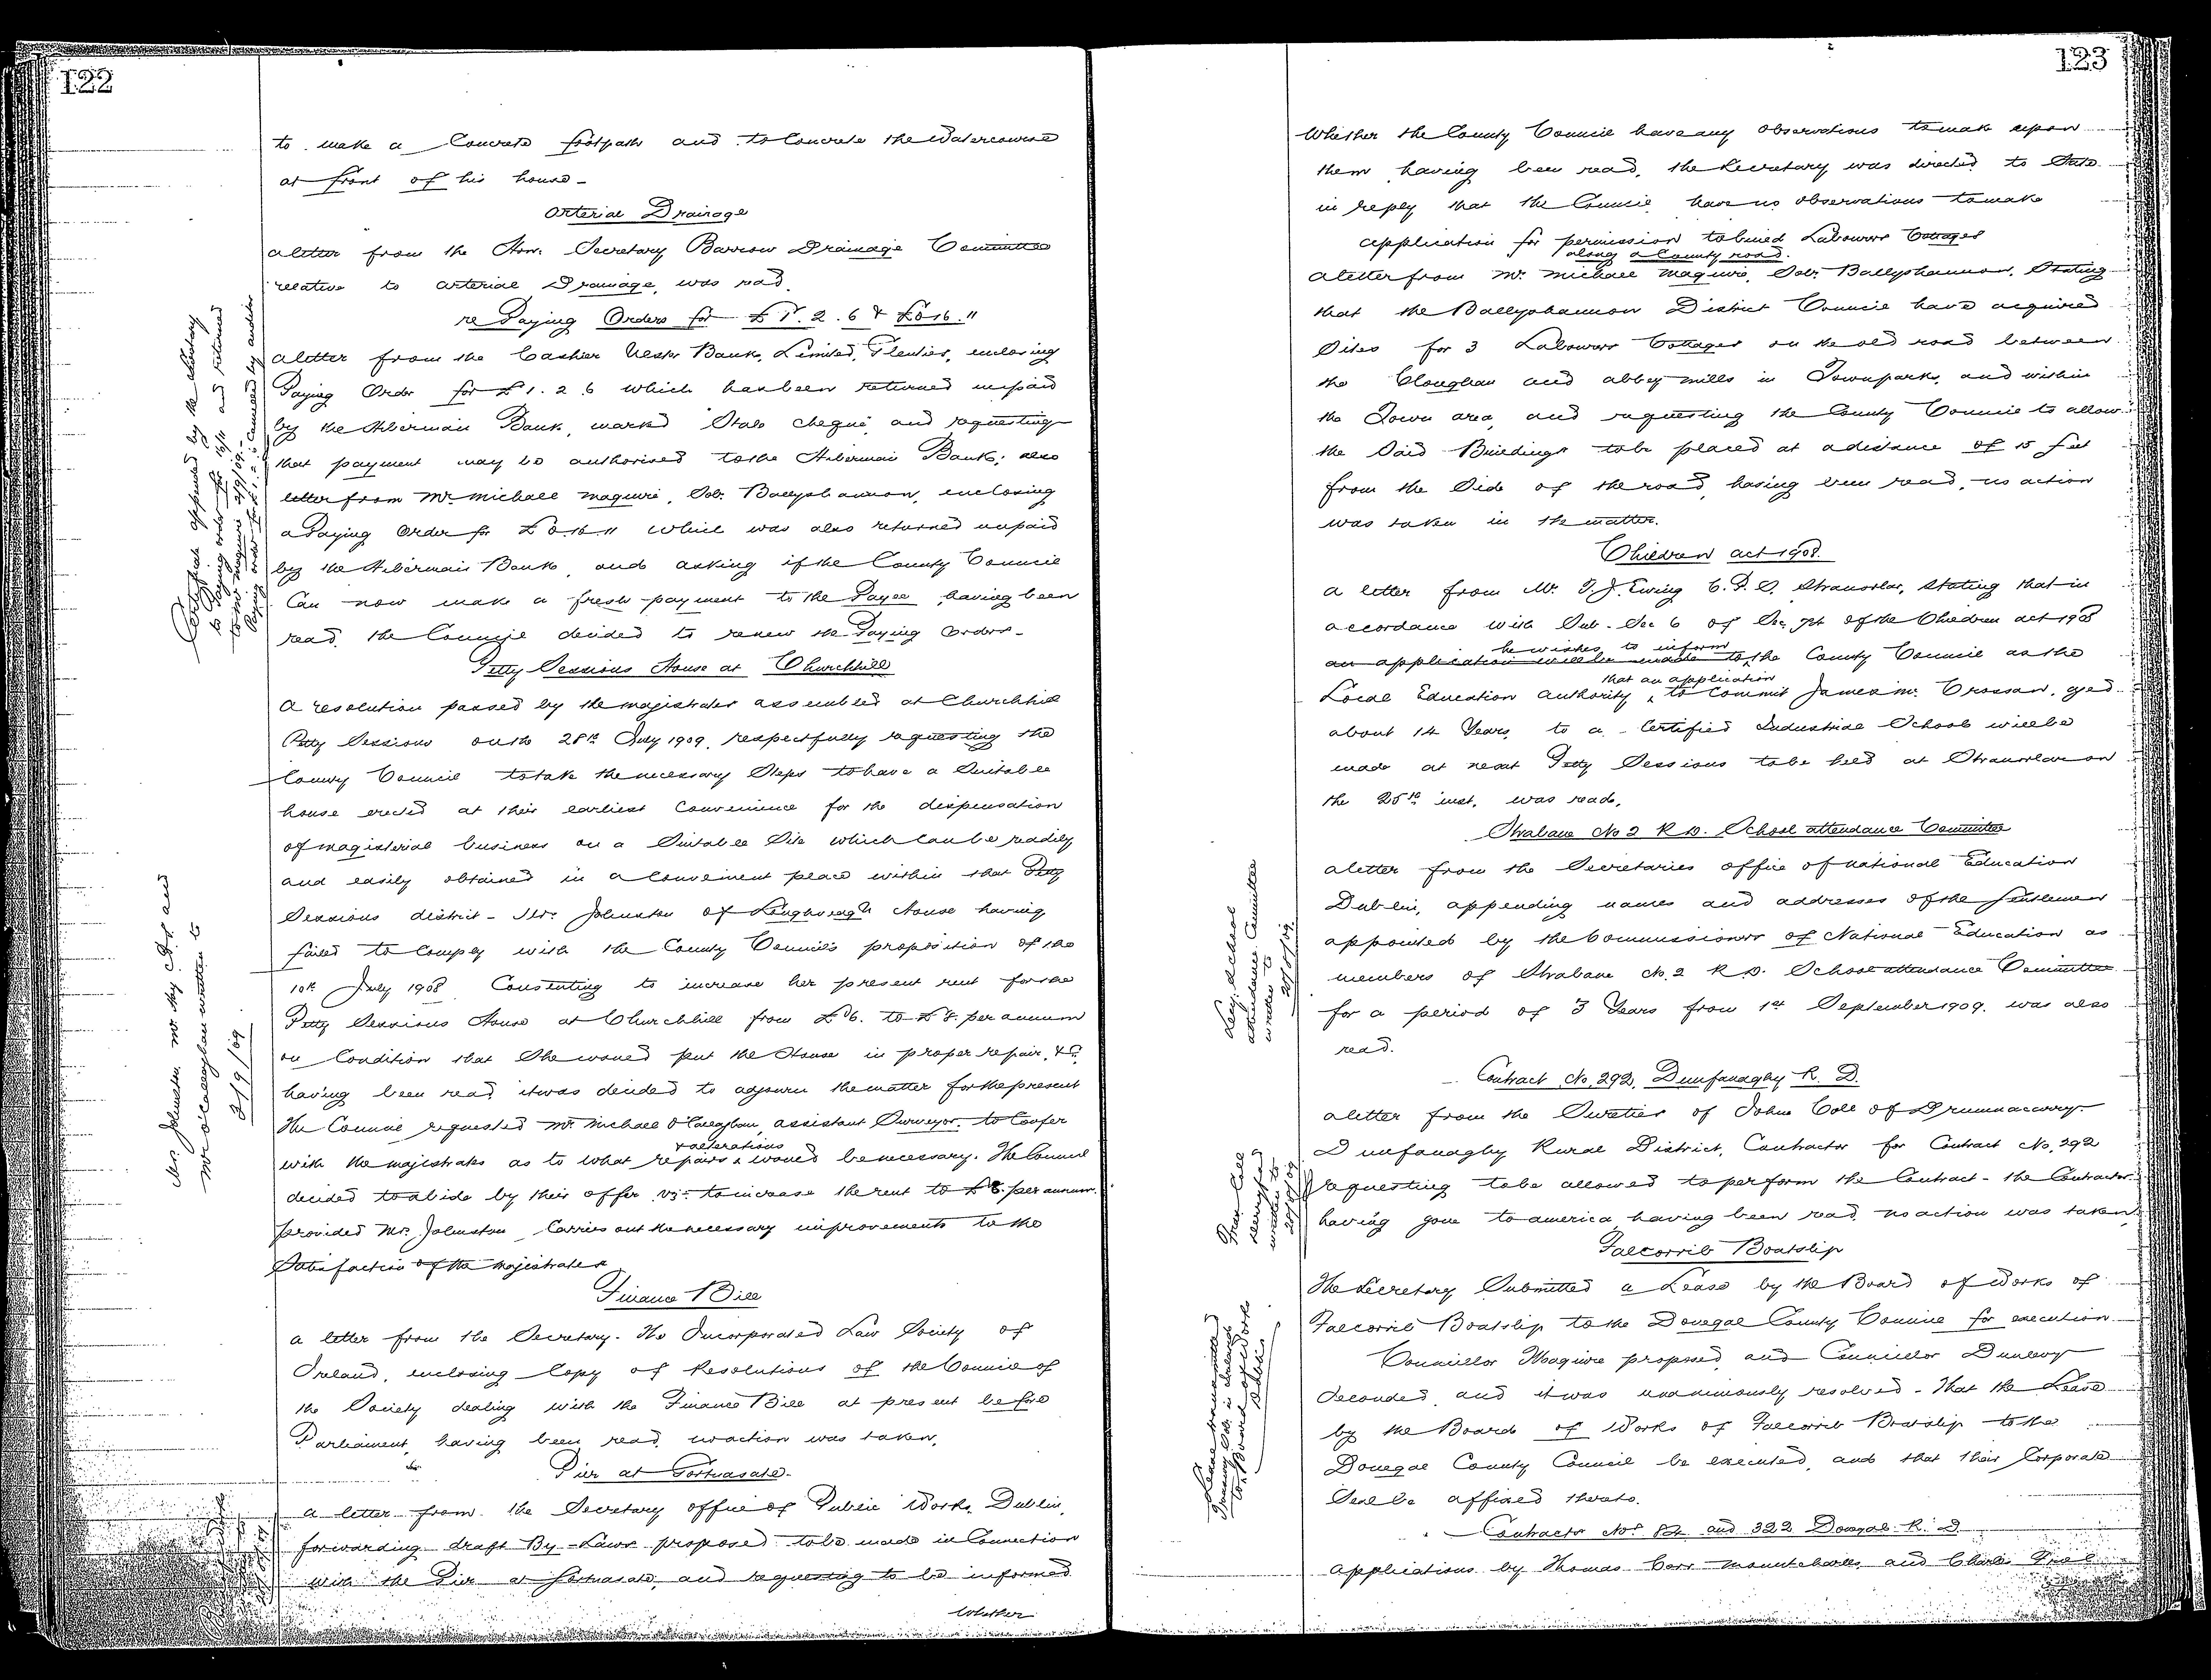 122
to make a Concrete footpath and to Concrete the Watercourse
at front of his house -
Arterial Drainage
a letter from the Hon. Secretary Barrow Drainage Committee
relative to arterial Drainage, was read.
re Paying Orders for £1. 2. 6 & £0 16. 11
a letter from the Cashier Ulster Bank, Limited, Glenties, enclosing
Paying Order for £1. 2. 6 which has been returned unpaid
by the Hibernian Bank, marked "Stale cheque" and requesting
that payment may be authorised to the Hibernian Bank; also
letter from Mr. Michael Maguire, Solr. Ballyshannon, enclosing
a Paying Order for £0.16.11 which was also returned unpaid
by the Hibernian Bank, and asking if the County Council
Can now make a fresh payment to the Payee, having been
read, the Council decided to renew the Paying Orders -
Petty Sessions House at Churchhill
A resolution passed by the magistrates assembled at Churchhill
Petty Sessions on the 28th July 1909, respectfully requesting the
County Council to take the necessary Steps to have a Suitable
house erected at their earliest Convenience for the dispensation
of magisterial business on a Suitable Site which can be readily
and easily obtained in a Convenient place within that Petty
Sessions district - Mrs. Johnston of House having
failed to Comply with the County Council's proposition of the
10th July 1908 Consenting to increase her present rent for the
Petty Sessions House at Churchhill from £6. to £8. per annum
on Condition that She would put the House in proper repair, &c.
having been read it was decided to adjourn the matter for the present
The Council requested Mr. Michael O'Callaghan, assistant Surveyor, to Confer
with the majistrates as to what repairs & alterations would be necessary. The Council
decided to abide by their offer viz- to increase the rent to £8. per annum.
provided Mrs. Johnston Carries out the necessary improvements to the
Satisfaction of the majistrates
Finance Bill
a letter from the Secretary. The Incorporated Law Society of
Ireland, enclosing Copy of Resolutions of the Council of
the Society dealing with the Finance Bill at present before
Parliament, having been read, no action was taken,
Pier at Portnasate -
a letter from the Secretary office of Public Works, Dublin,
forwarding draft By-Laws proposed to be made in Connection
with the Pier at Portnasate, and requesting to be informed
Whether
Certificate appened by the Secretary
to Paying order for 16/11 and returned
to Mr Maguire 2/9/09. -
Paying order for £1. 2. 6 Cancelled by auditor
Mrs. Johnston and
Mr O'Callaghan written to
2/9/09
123
Whether the County Council have any observations to make upon
them having been read, the Secretary was directed to State
in reply that the Council have no observations to make
application for permission to build Labourers Cottages
along a County road.
a letter from Mr. Michael Maguire, Solr. Ballyshannon, Stating
that the Ballyshannon District Council have acquired
Sites for 3 Labourers Cottages on the old road between
the Cloughan and abbey mills in Townparks, and within
the Town area, and requesting the County Council to allow
the Said Buildings to be placed at a distance of 15 feet
from the Side of the road, having been read, no action
was taken in the matter.
Children act 1908.
a letter from Mr. T. J. Ewing C. P. S. Stranorlar, Stating that in
accordance with Sub-Sec 6 of Sec. 74 of the Children act 1908
he wishes to inform
an application will be made to the County Council as the
that an application
Local Education Authority, to Commit James Mc. Crossan, aged
about 14 Years, to a Certified Industrial School will be
made at next Petty Sessions to be held at Stranorlar on
the 25th inst. was read,
Strabane No 2 R.D. School attendance Committee
a letter from the Secretaries office of National Education
Dublin, appending names and addresses of the Gentlemen
appointed by the Commissioners of National Education as
members of Strabane No. 2 R.D. School attendance Committee
for a period of 3 Years from 1st September 1909. was also
read.
Contract No. 292, Dunfanaghy R. D.
a letter from the Sureties of John Coll of
Dunfanaghy Rural District, Contractor for Contract No. 292
requesting to be allowed to perform the Contract - the Contractor
having gone to america, having been read, no action was taken.
Falcorrib Boatslip
The Secretary Submitted a Lease by the Board of Works of
Falcorrib Boatslip to the Donegal County Council for execution
Councillor Maguire proposed, and Councillor Dunlevy
Seconded, and it was unanimously resolved - That the Lease
by the Board of Works of Falcorrib Boatslip to the
Donegal County Council be executed, and that their Corporate
Seal be affixed thereto.
Contracts Nos. 82 and 322 Donegal R. D.
applications by Thomas Carr Mountcharles, and Charles
Secy. School
attendance Committee
written to
Coll
written to
Lease transmitted
to Board of Works
Dublin